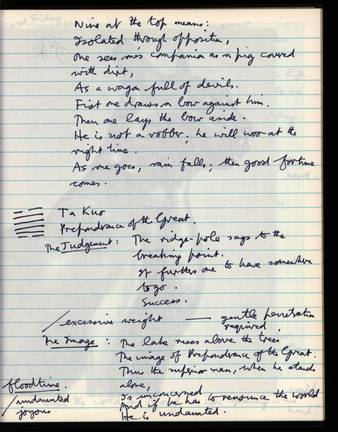 Nine at the top means:
Isolated through opposition,
One sees one's companion as a pig covered
with dirt,
As a wagon full of devils.
First one draws a bow against him.
Then one lays the bow aside.
He is not a robber; he will woo at the
right time.
As one goes, rain falls; then good fortune
comes.
Ta Kuo
Preponderance of the Great.
The Judgement: The ridge-pole sags to the
breaking point.
It furthers one to have somewhere
to go.
Success.
excessive weight — gentle penetration
required.
The Image: The lake rises above the trees
The image of Preponderance of the Great.
Thus the superior man, when he stands
alone,
Is unconcerned
And if he has to renounce the world
He is undaunted.
floodtime.
undaunted
joyous